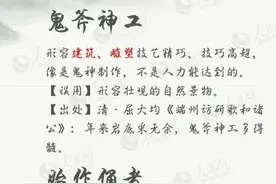 鬼斧神工
形容建筑、雕塑技艺精巧、技巧高超，
像是鬼神制作，不是人力能达到的。
【误用】形容壮观的自然景物。
【出处】清·屈大均《端州访研歌和诸
公》：年来岩底采无余，鬼斧神工多得
髓。
始作俑者